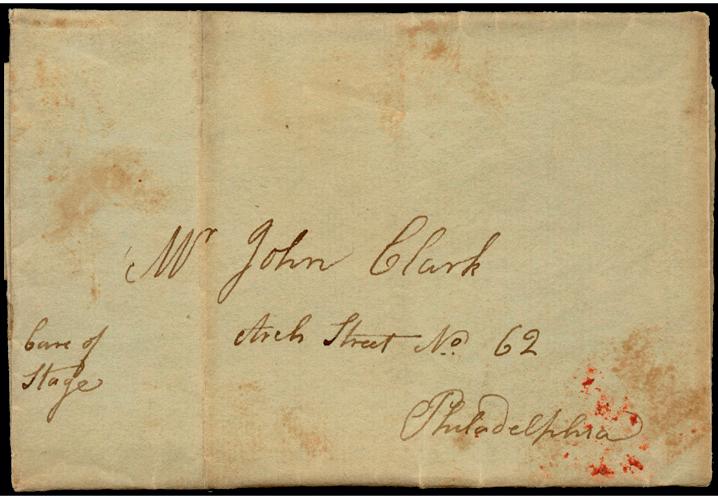 Mr John Clark
Arch Street No. 62
Philadelphia
Care of
Stage